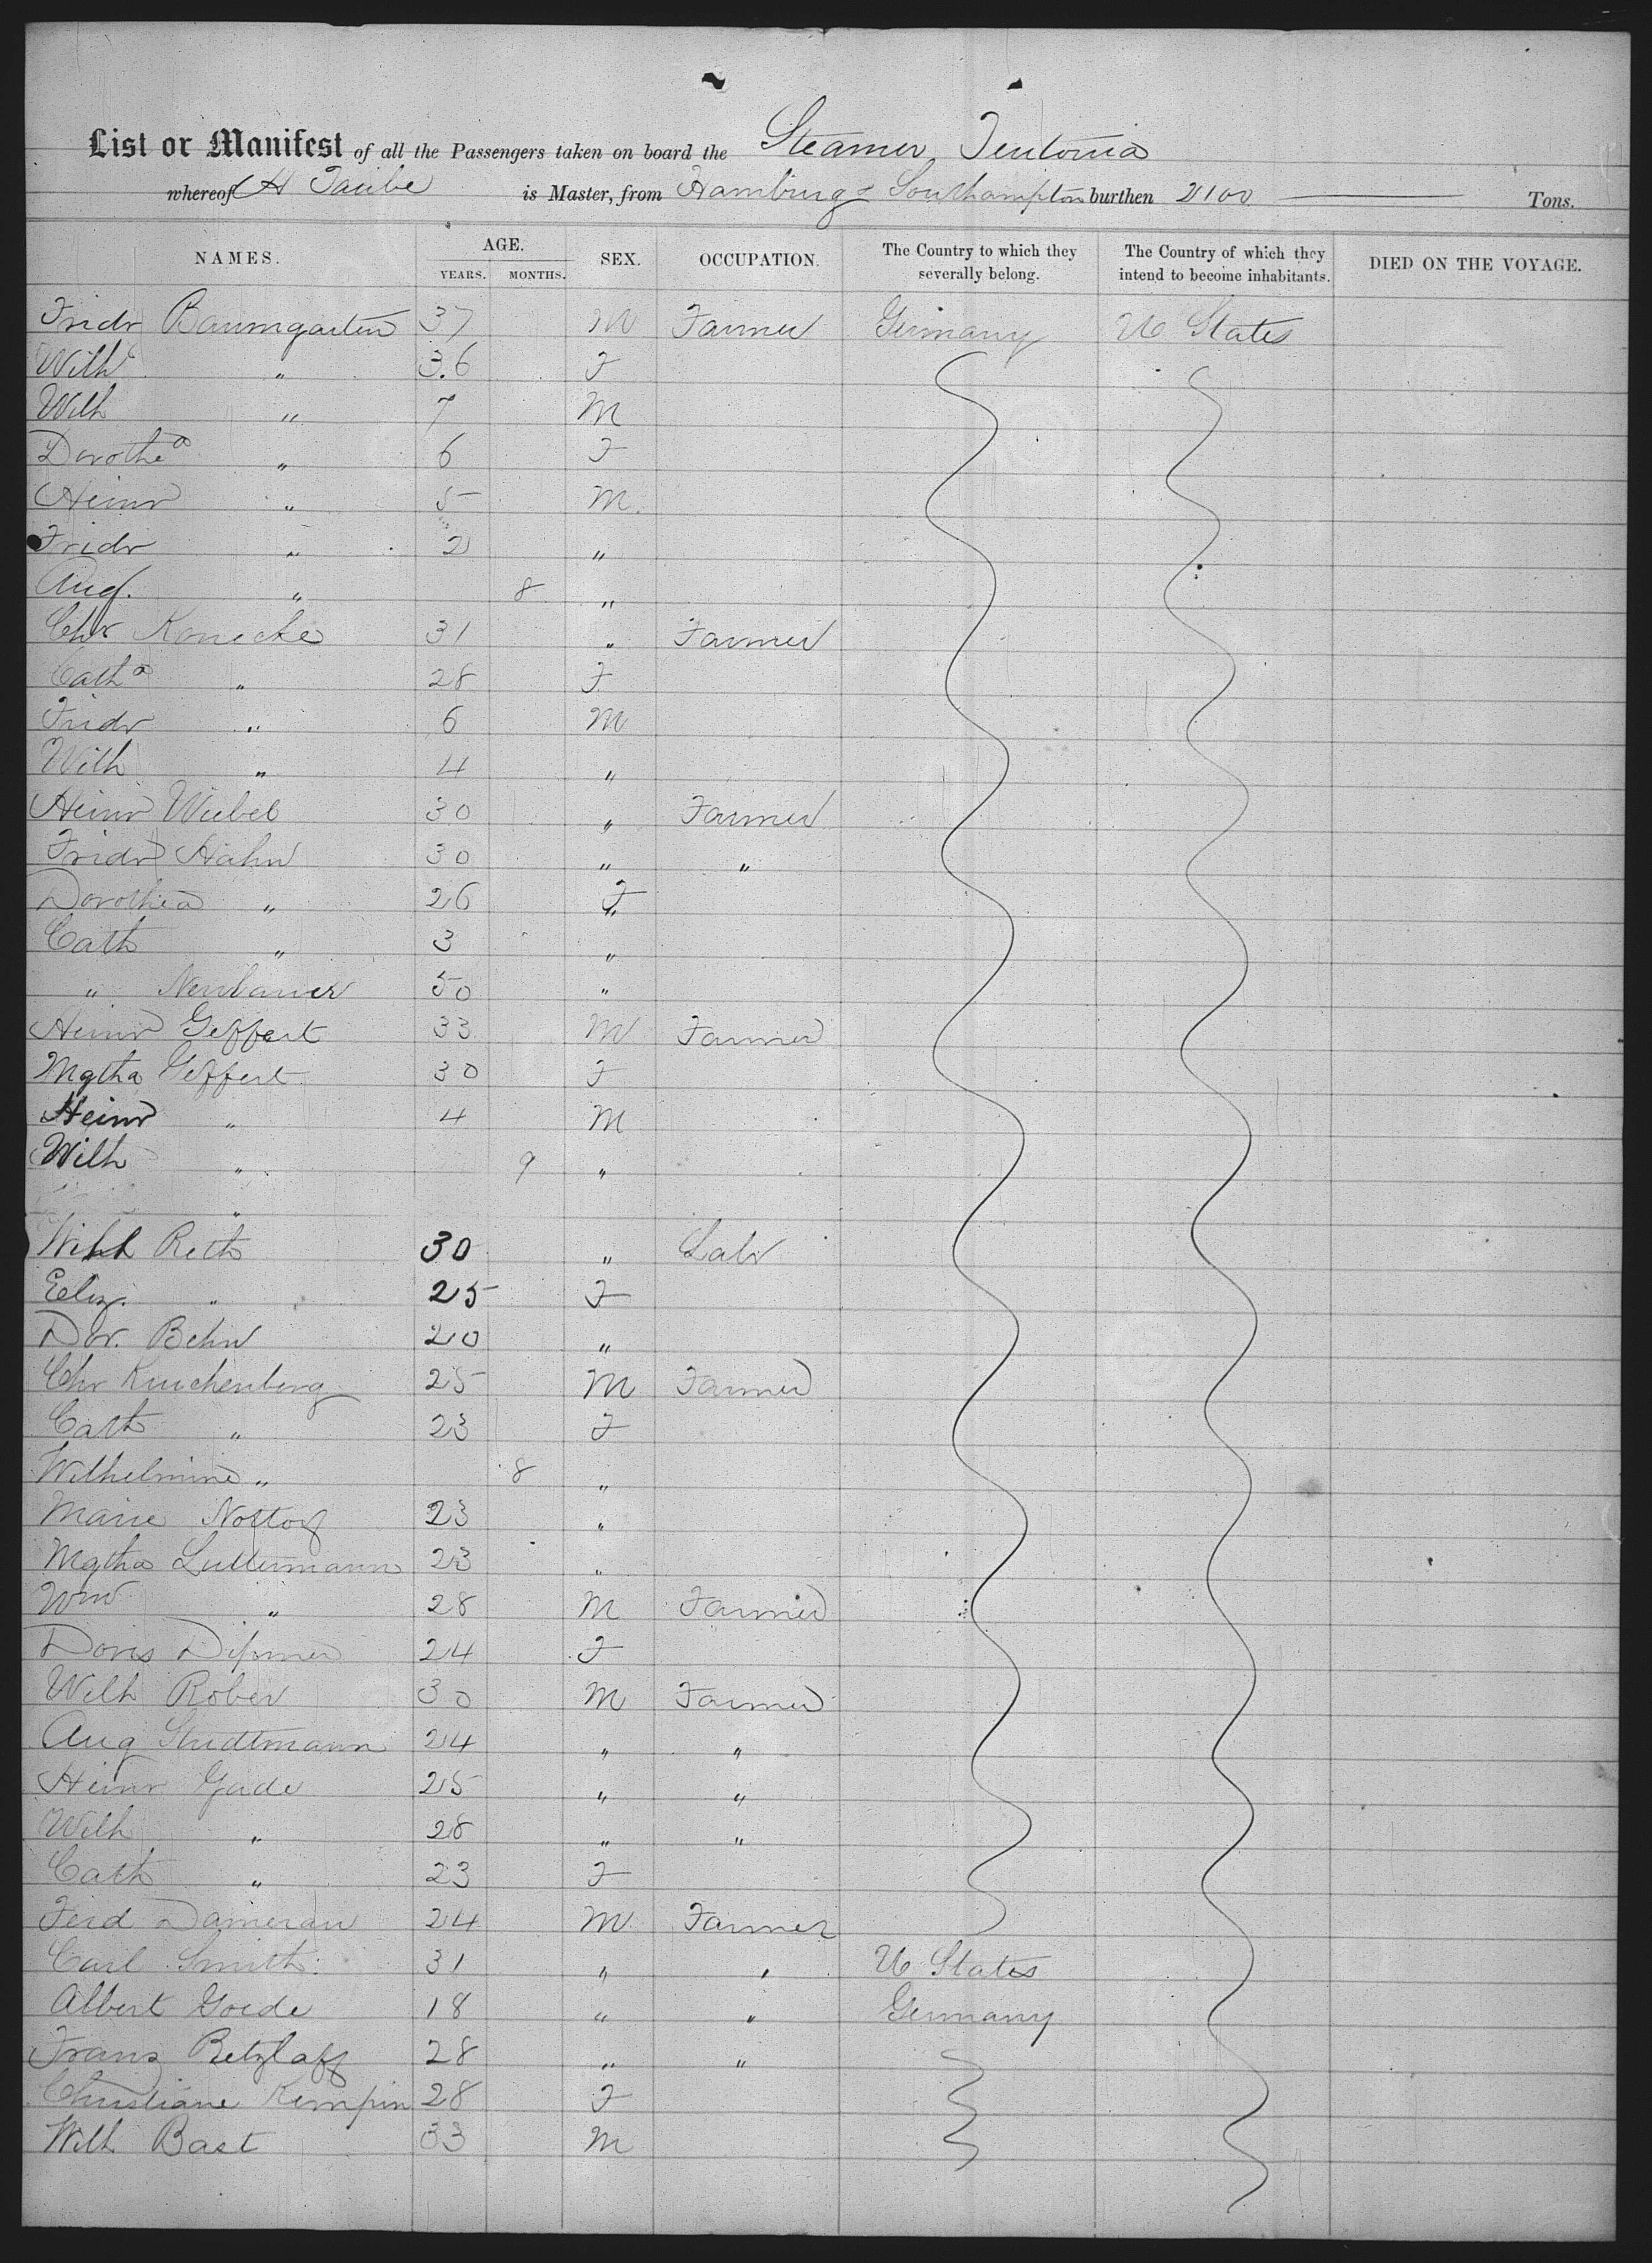 List or Manifest of all the Passengers taken on board the Steamer Teutonia
whereof H Taube is Master, from Hamburg & Southampton burthen 2100 Tons.
NAMES. AGE. YEARS. MONTHS. SEX. OCCUPATION. The Country to which they severally belong. The Country of which they intend to become inhabitants. DIED ON THE VOYAGE.
Fridr Baumgarten 37 M Farmer Germany U States
Wilh " 36 F
Wilh " 7 M
Dorothea " 6 F
Heinr " 5 M
Fridr " 2 "
Aug. " 8 "
Chr Konecke 31 " Farmer
Catha " 28 F
Fridr " 6 M
Wilh " 4 "
Heinr Wiebel 30 " Farmer
Fridr Hahn 30 " "
Dorothea " 26 F
Cath " 3 "
" Neubauer 50 "
Heinr Geffert 33 M Farmer
Mgtha Geffert 30 F
Heinr " 4 M
Wilh " 9 "
"
Wilh Reth 30 " Labr
Eliz. " 25 F
Dor. Behn 20 "
Chr Kuichenberg 25 M Farmer
Cath " 23 F
Wilhelmine " 8 "
Marie Nottorf 23 "
Mgtha Luttermann 23 "
Wm " 28 M Farmer
Doris 24 F
Wilh Rober 30 M Farmer
Aug Studtmann 24 " "
Heinr Gade 25 " "
Wilh " 28 " "
Cath " 23 F
Ferd Damerau 24 M Farmer
Carl Smith 31 " " U States
Albert Goede 18 " " Germany
Franz Retzlaff 28 " "
Christiane Kempin 28 F
Wilh Bast 33 M